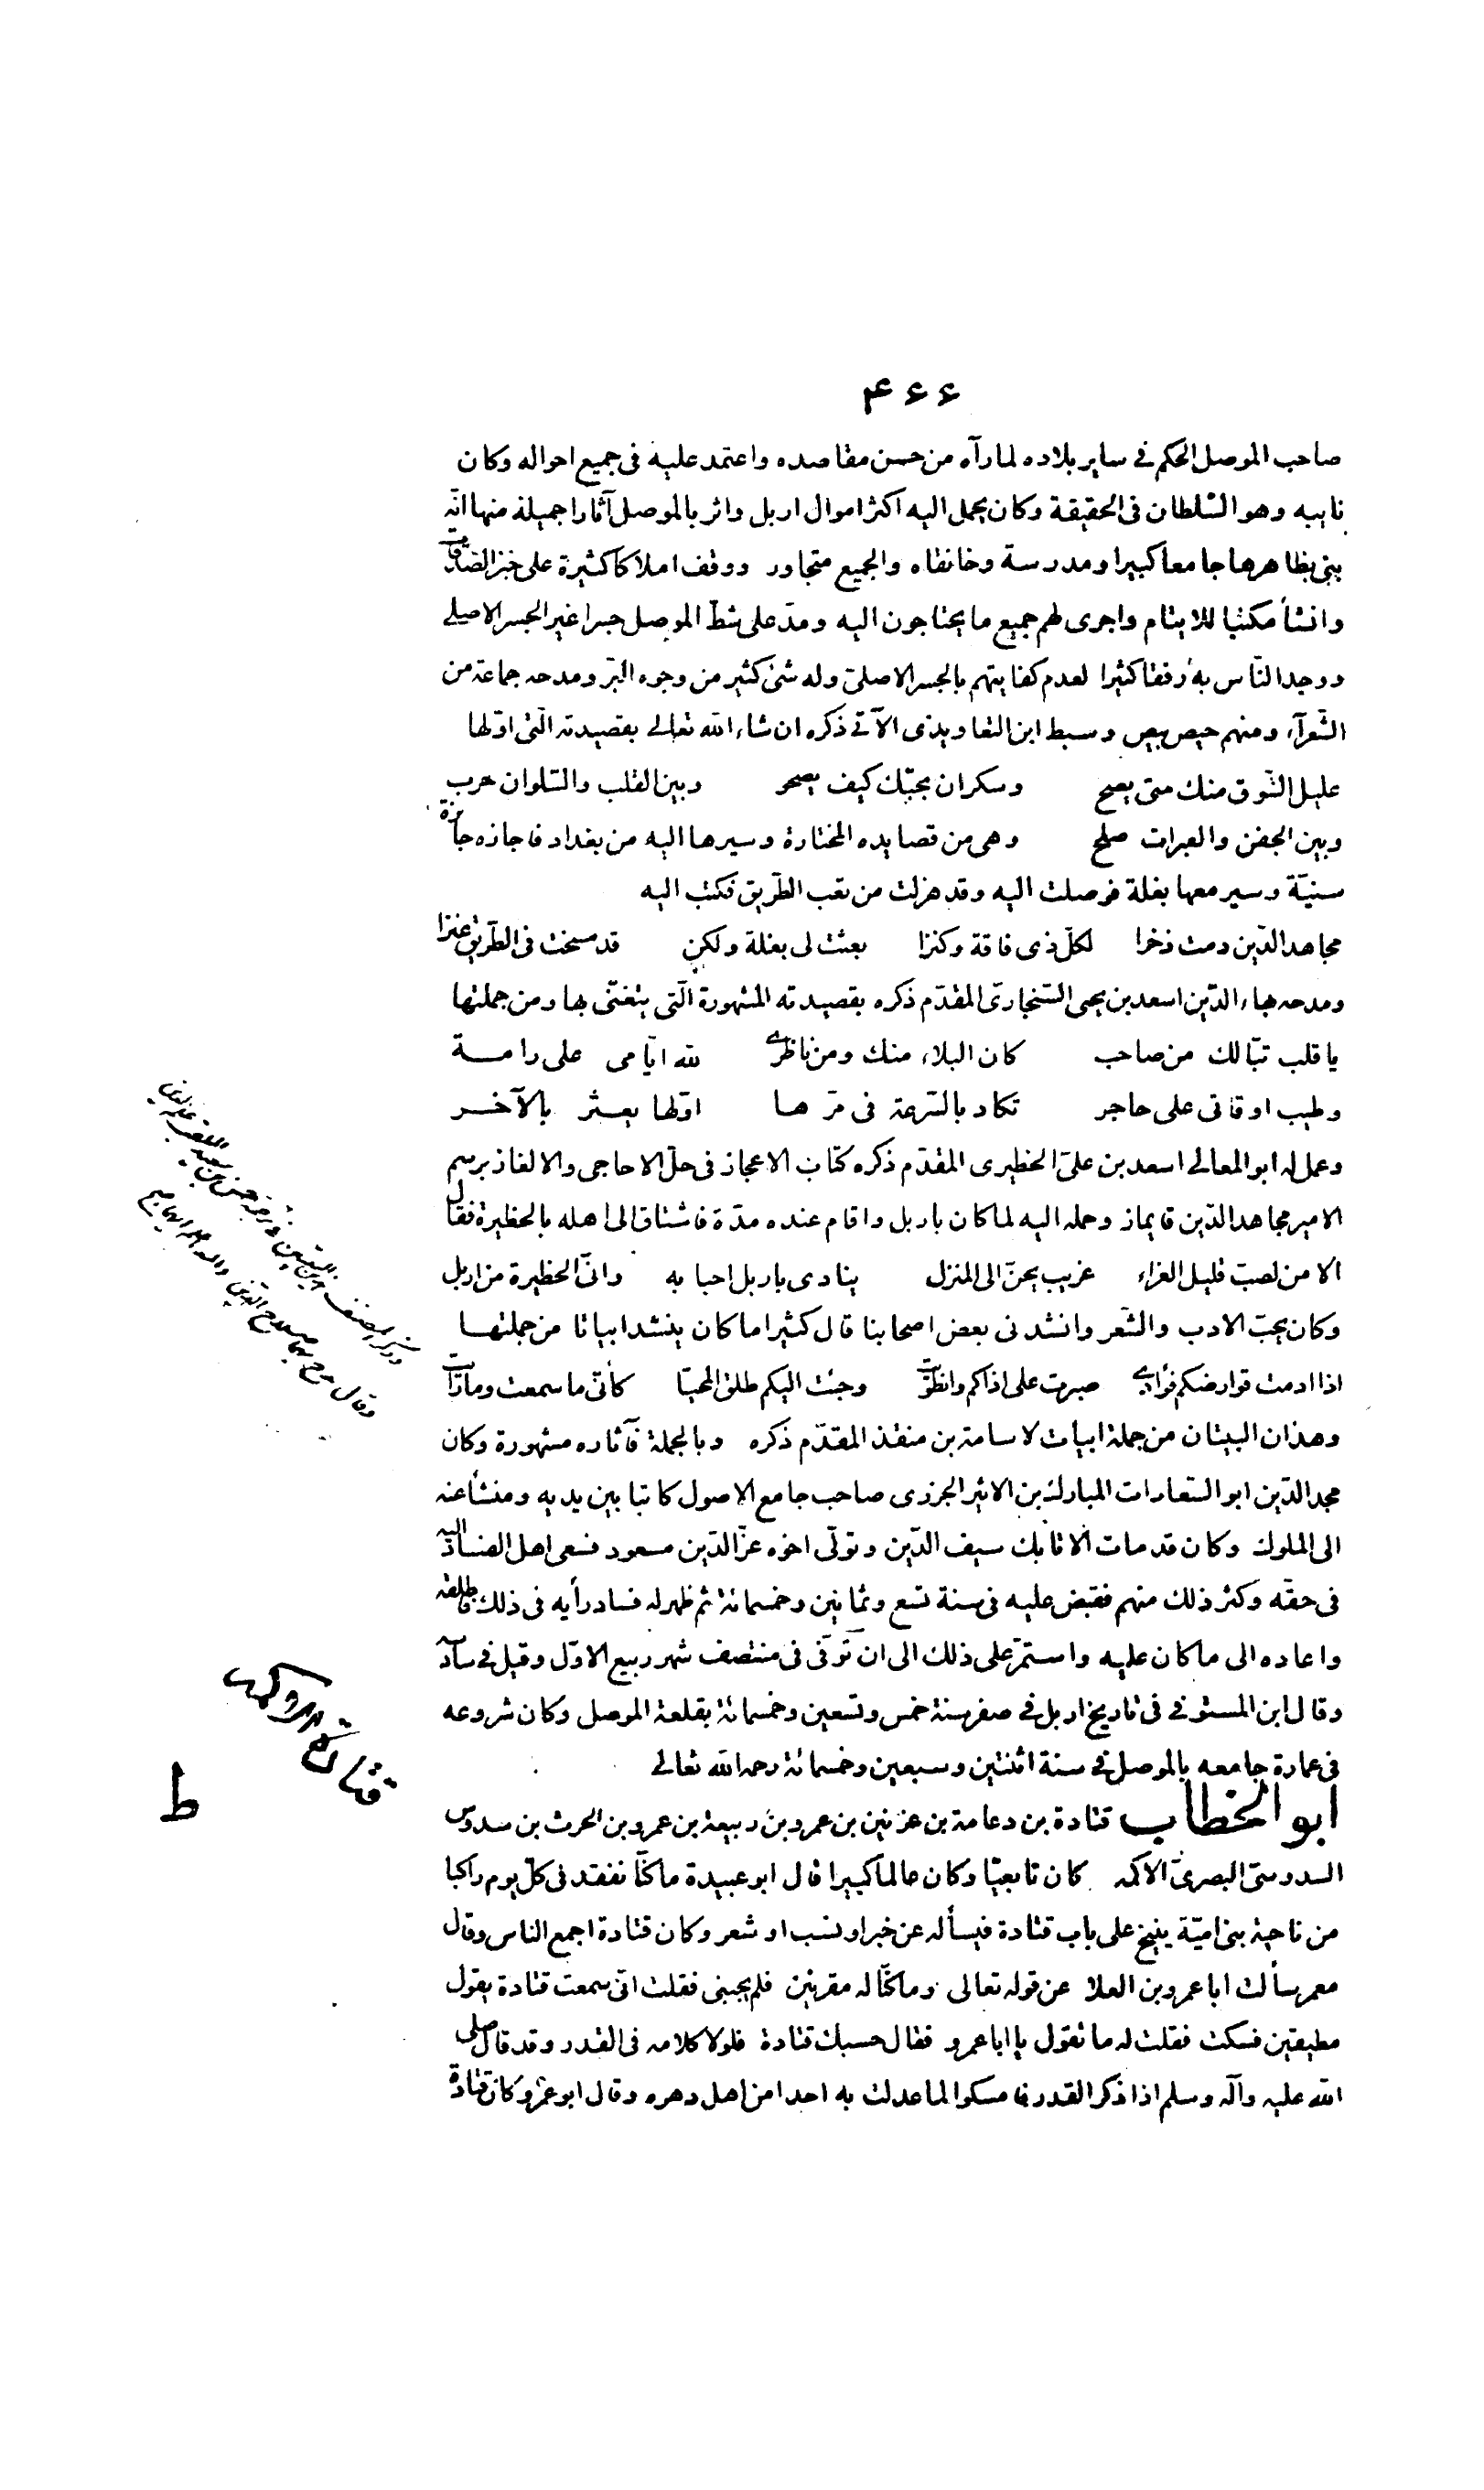 ۴۶۶
صاحب الموصل الحكم فى ساير بلاده لما رآه من حسن مقاصده واعتمد عليه فى جميع احواله وكان
نايبه وهو السّلطان فى الحقيقة وكان يحمل اليه اكثر اموال اربل واثر بالموصل آثارا جميلة منها انّه
بنى بظاهرها جامعا كبيرا ومدرسة وخانقاه والجميع متجاور ووقف املاكا كثيرة على خبز الصّدقات
وانشأ مكتبا للايتام واجرى لهم جميع ما يحتاجون اليه ومدّ على شطّ الموصل جسرا غير الجسر الاصلى
ووجد النّاس به رفقا كثيرا لعدم كفايتهم بالجسر الاصلىّ وله شئ كثير من وجوه البرّ ومدحه جماعة من
الشّعرآء ومنهم حيص بيص وسبط ابن التعاويذى الآتى ذكره ان شاء الله تعالى بقصيدته الّتى اوّلها
عليل الشّوق منك متى يصح وسكران بحبّك كيف يصحو وبين القلب والسّلوان حرب
وبين الجفن والعبرات صلح وهى من قصايده المختارة وسيرها اليه من بغداد فاجازه جائزة
سنيّة وسير معها بغلة فوصلت اليه وقد هزلت من تعب الطّريق فكتب اليه
مجاهد الدّين دمت ذخرا لكلّ ذى فاقة وكنزا بعثت لى بغلة ولكن قد مسخت فى الطّريق عنزا
ومدحه بهاء الدّين اسعد بن يحيى السّنجارىّ المقدّم ذكره بقصيدته المشهورة الّتى يتغنّى بها ومن جملتها
يا قلب تبّا لك من صاحب كان البلاء منك ومن ناظرى لله ايّامى على رامة
وطيب اوقاتى على حاجر تكاد بالسّرعة فى مرّها اوّلها يعثر بالآخر
وعمل له ابو المعالى اسعد بن علىّ الحظيرى المقدّم ذكره كتاب الاعجاز فى حلّ الاحاجى والالغاز برسم
الامير مجاهد الدّين قايماز وحمله اليه لما كان باربل واقام عنده مدّة فاشتاق الى اهله بالحظيرة فقال
الا من لصبّ قليل العزاء غريب يحنّ الى المنزل ينادى باربل احبابه وانّ الحظيرة من اربل
وكان يحبّ الادب والشّعر وانشدنى بعض اصحابنا قال كثيرا ما كان ينشد ابياتا من جملتها
اذا ادمت قوارضكم فؤادى صبرت على اذاكم وانطويت وجئت اليكم طلق المحيّا كأنّى ما سمعت وما رأيت
وهذان البيتان من جملة ابيات لاسامة بن منقذ المقدّم ذكره وبالجملة فآثاره مشهورة وكان
مجد الدّين ابو السّعادات المبارك بن الاثير الجزرى صاحب جامع الاصول كاتبا بين يديه ومنشأ عنه
الى الملوك وكان قد مات الاتابك سيف الدّين وتولّى اخوه عزّ الدّين مسعود فسعى اهل الفساد اليه
فى حقّه وكثر ذلك منهم فقبض عليه فى سنة تسع وثمانين وخمسمائة ثم ظهر له فساد رأيه فى ذلك فاطلقه
واعاده الى ما كان عليه واستمرّ على ذلك الى ان توفّى فى منتصف شهر ربيع الاوّل وقيل فى سادسه
وقال ابن المستوفى فى تاريخ اربل فى صفر سنة خمس وتسعين وخمسمائة بقلعة الموصل وكان شروعه
فى عمارة جامعه بالموصل فى سنة اثنتين وسبعين وخمسمائة رحمه الله تعالى
ابو الخطاب قتادة بن دعامة بن عزنين بن عمرو بن ربيعة بن عمرو بن الحرث بن سدوس
السدوسىّ البصرىّ الاكمه كان تابعيّا وكان عالما كبيرا قال ابو عبيدة ما كنّا نفقد فى كلّ يوم راكبا
من ناحية بنى اميّة ينيخ على باب قتادة فيسأله عن خبر او نسب او شعر وكان قتادة اجمع الناس وقال
معمر سألت ابا عمرو بن العلا عن قوله تعالى وما كنّا له مقرنين فلم يجبنى فقلت انّى سمعت قتادة يقول
مطيقين فسكت فقلت له ما تقول يا ابا عمرو فقال حسبك قتادة فلولا كلامه فى القدر وقد قال صلى
الله عليه وآله وسلم اذا ذكر القدر فامسكوا لما عدلت به احدا من اهل دهره وقال ابو عمرو كان قتادة
قتادة
ط